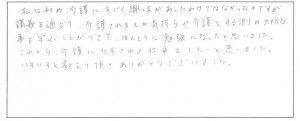 私は初め、介護にすごく興味があったわけではなかったのですが
講義を通じて、介護される人の気持ちや介護をする側の大切な
事を学ぶことができて、ほんとうに勉強になったと思いました。
これから、介護にたずさわる仕事をしたいと思いました。
いろいろと教えて頂きありがとうございました。